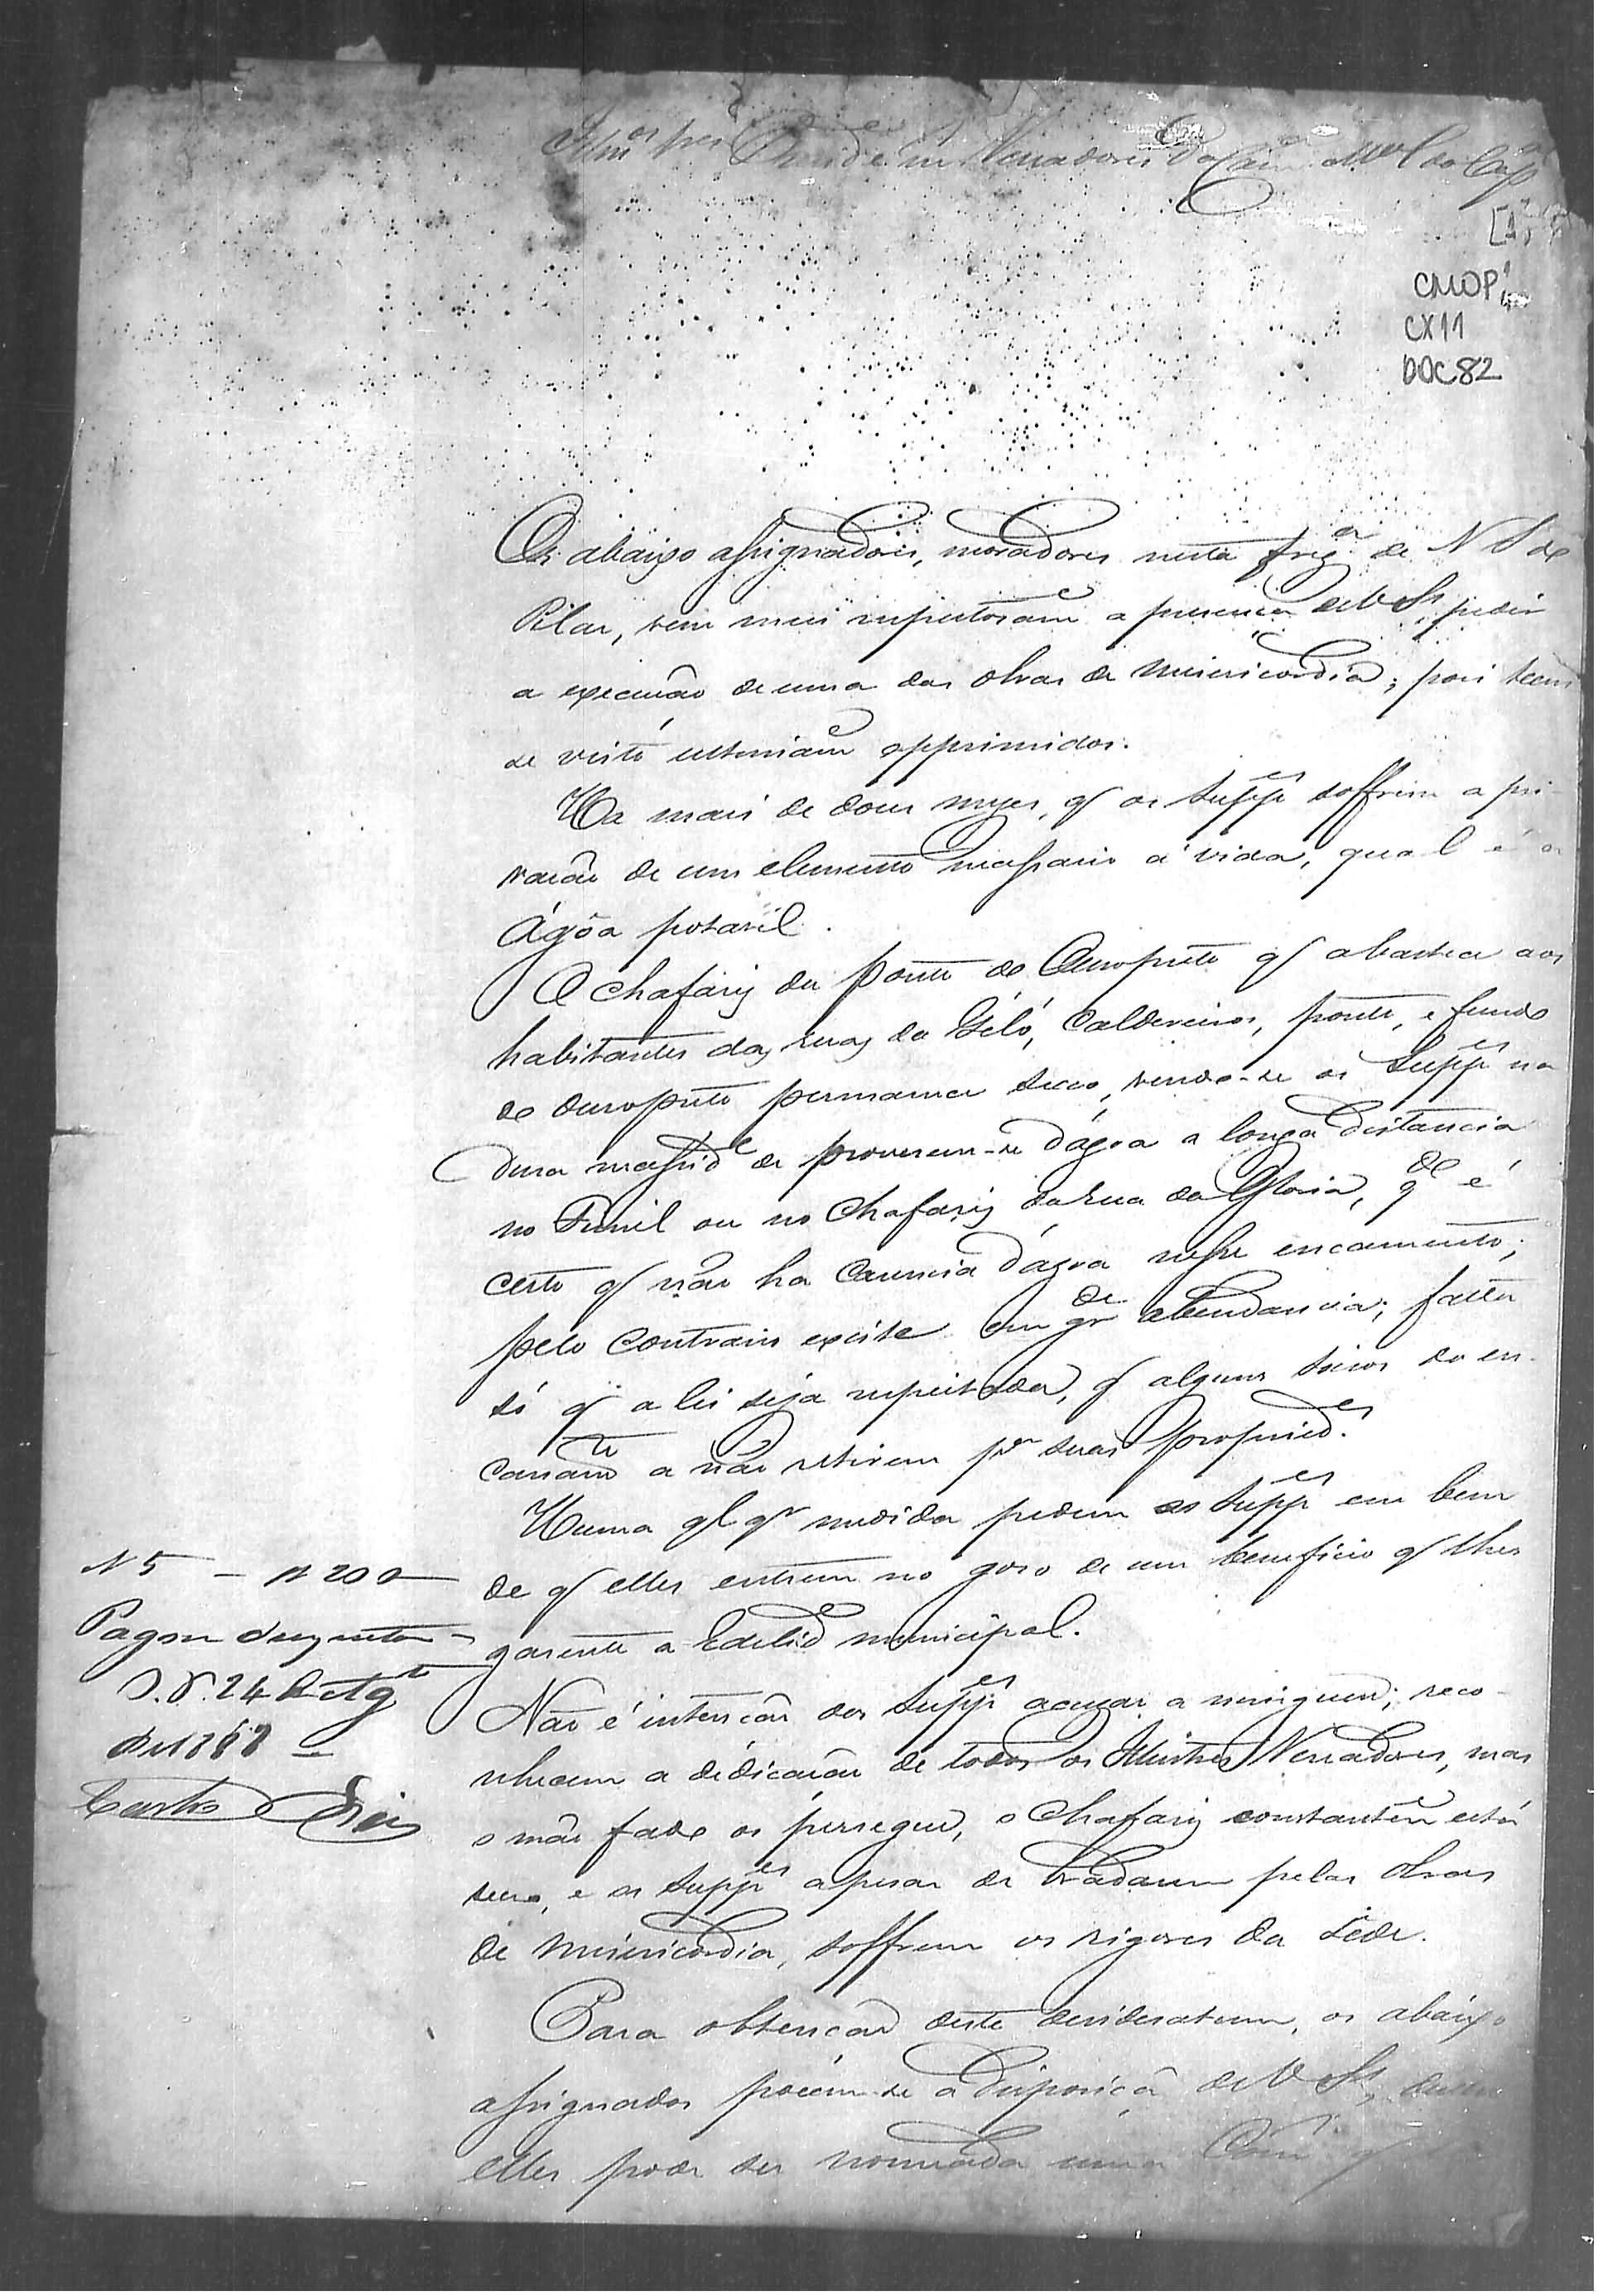 Illmos Snres Presidee e Vereadores da Camª Mal da Capal
CMOP
CX11
DOC82
Os abaixo assignados, moradores nesta fregª de N S do
Pilar, vem mui respeitosame a presença de V Sªs, pedir
a execução de uma das obras de misericordia; pois teem
se visto ultimame opprimidos.
Ha mais de dous mezes, q os Suppes soffrem a pri-
vação de um elemento necessario á vida, qual é a
Ágôa potavel.
O Chafariz da ponte do Ouropreto q abastece aos
habitantes das ruas do Giló, Caldereiros, ponte, e fundo
do Ouropreto permanece secco, vendo-se os Suppes na
dura necesside de proverem-se d'ágoa a longa distancia
no Funil ou no Chafariz da rua da Gloria, qdo é
certo q não ha carencia d'ágoa nesse encanamento;
pelo contrario existe em grde abundancia; falta
só q a lei seja respeitada, q alguns socios do en-
canamto a não retirem pª suas propriedes.
Huma qlqr medida pedem os Suppes em bem
de q elles entrem no goso de um beneficio q lhes
garante a Edilide municipal.
Não é intenção dos Suppes acuzar a ninguem; reco-
nhecem a dedicação de todos os Illustres Vereadores, mas
o máo fado os persegue, o Chafariz constanteme está
secco, e os Suppes apesar de bradarem pelas obras
de misericordia, soffrem os rigores da sede.
Para obtenção deste desideratum, os abaixo
assignados poem-se á disposição de V Sªs,
elles pode ser nomeada uma Comm q
N 5 — 200
Pagou duzentos
O. P. 24 de Agto
de 1868
Castro Dias